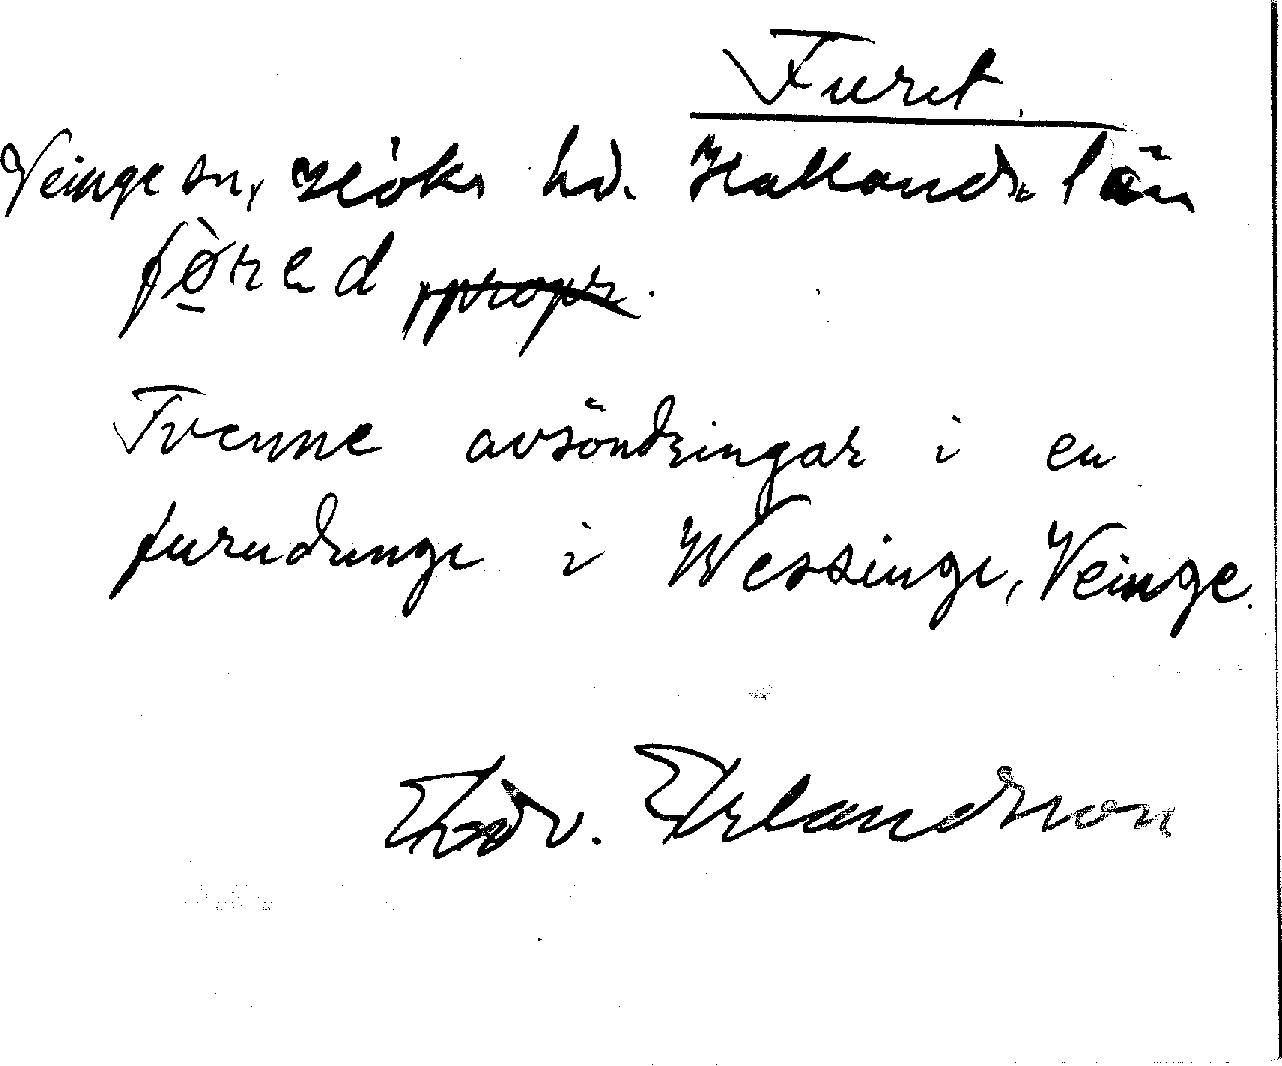 Furet.
Veinge sn, Höks hd. Hallands län
fø̱̀red propr.
Tvenne avsöndringar i en
furudunge i Wessinge, Veinge.
Edv. Erlandsson